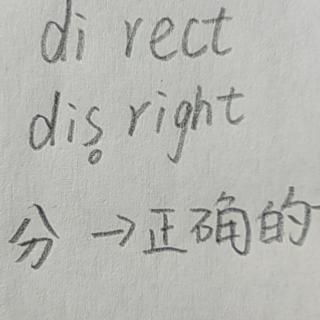 di rect
dis right
分 → 正确的